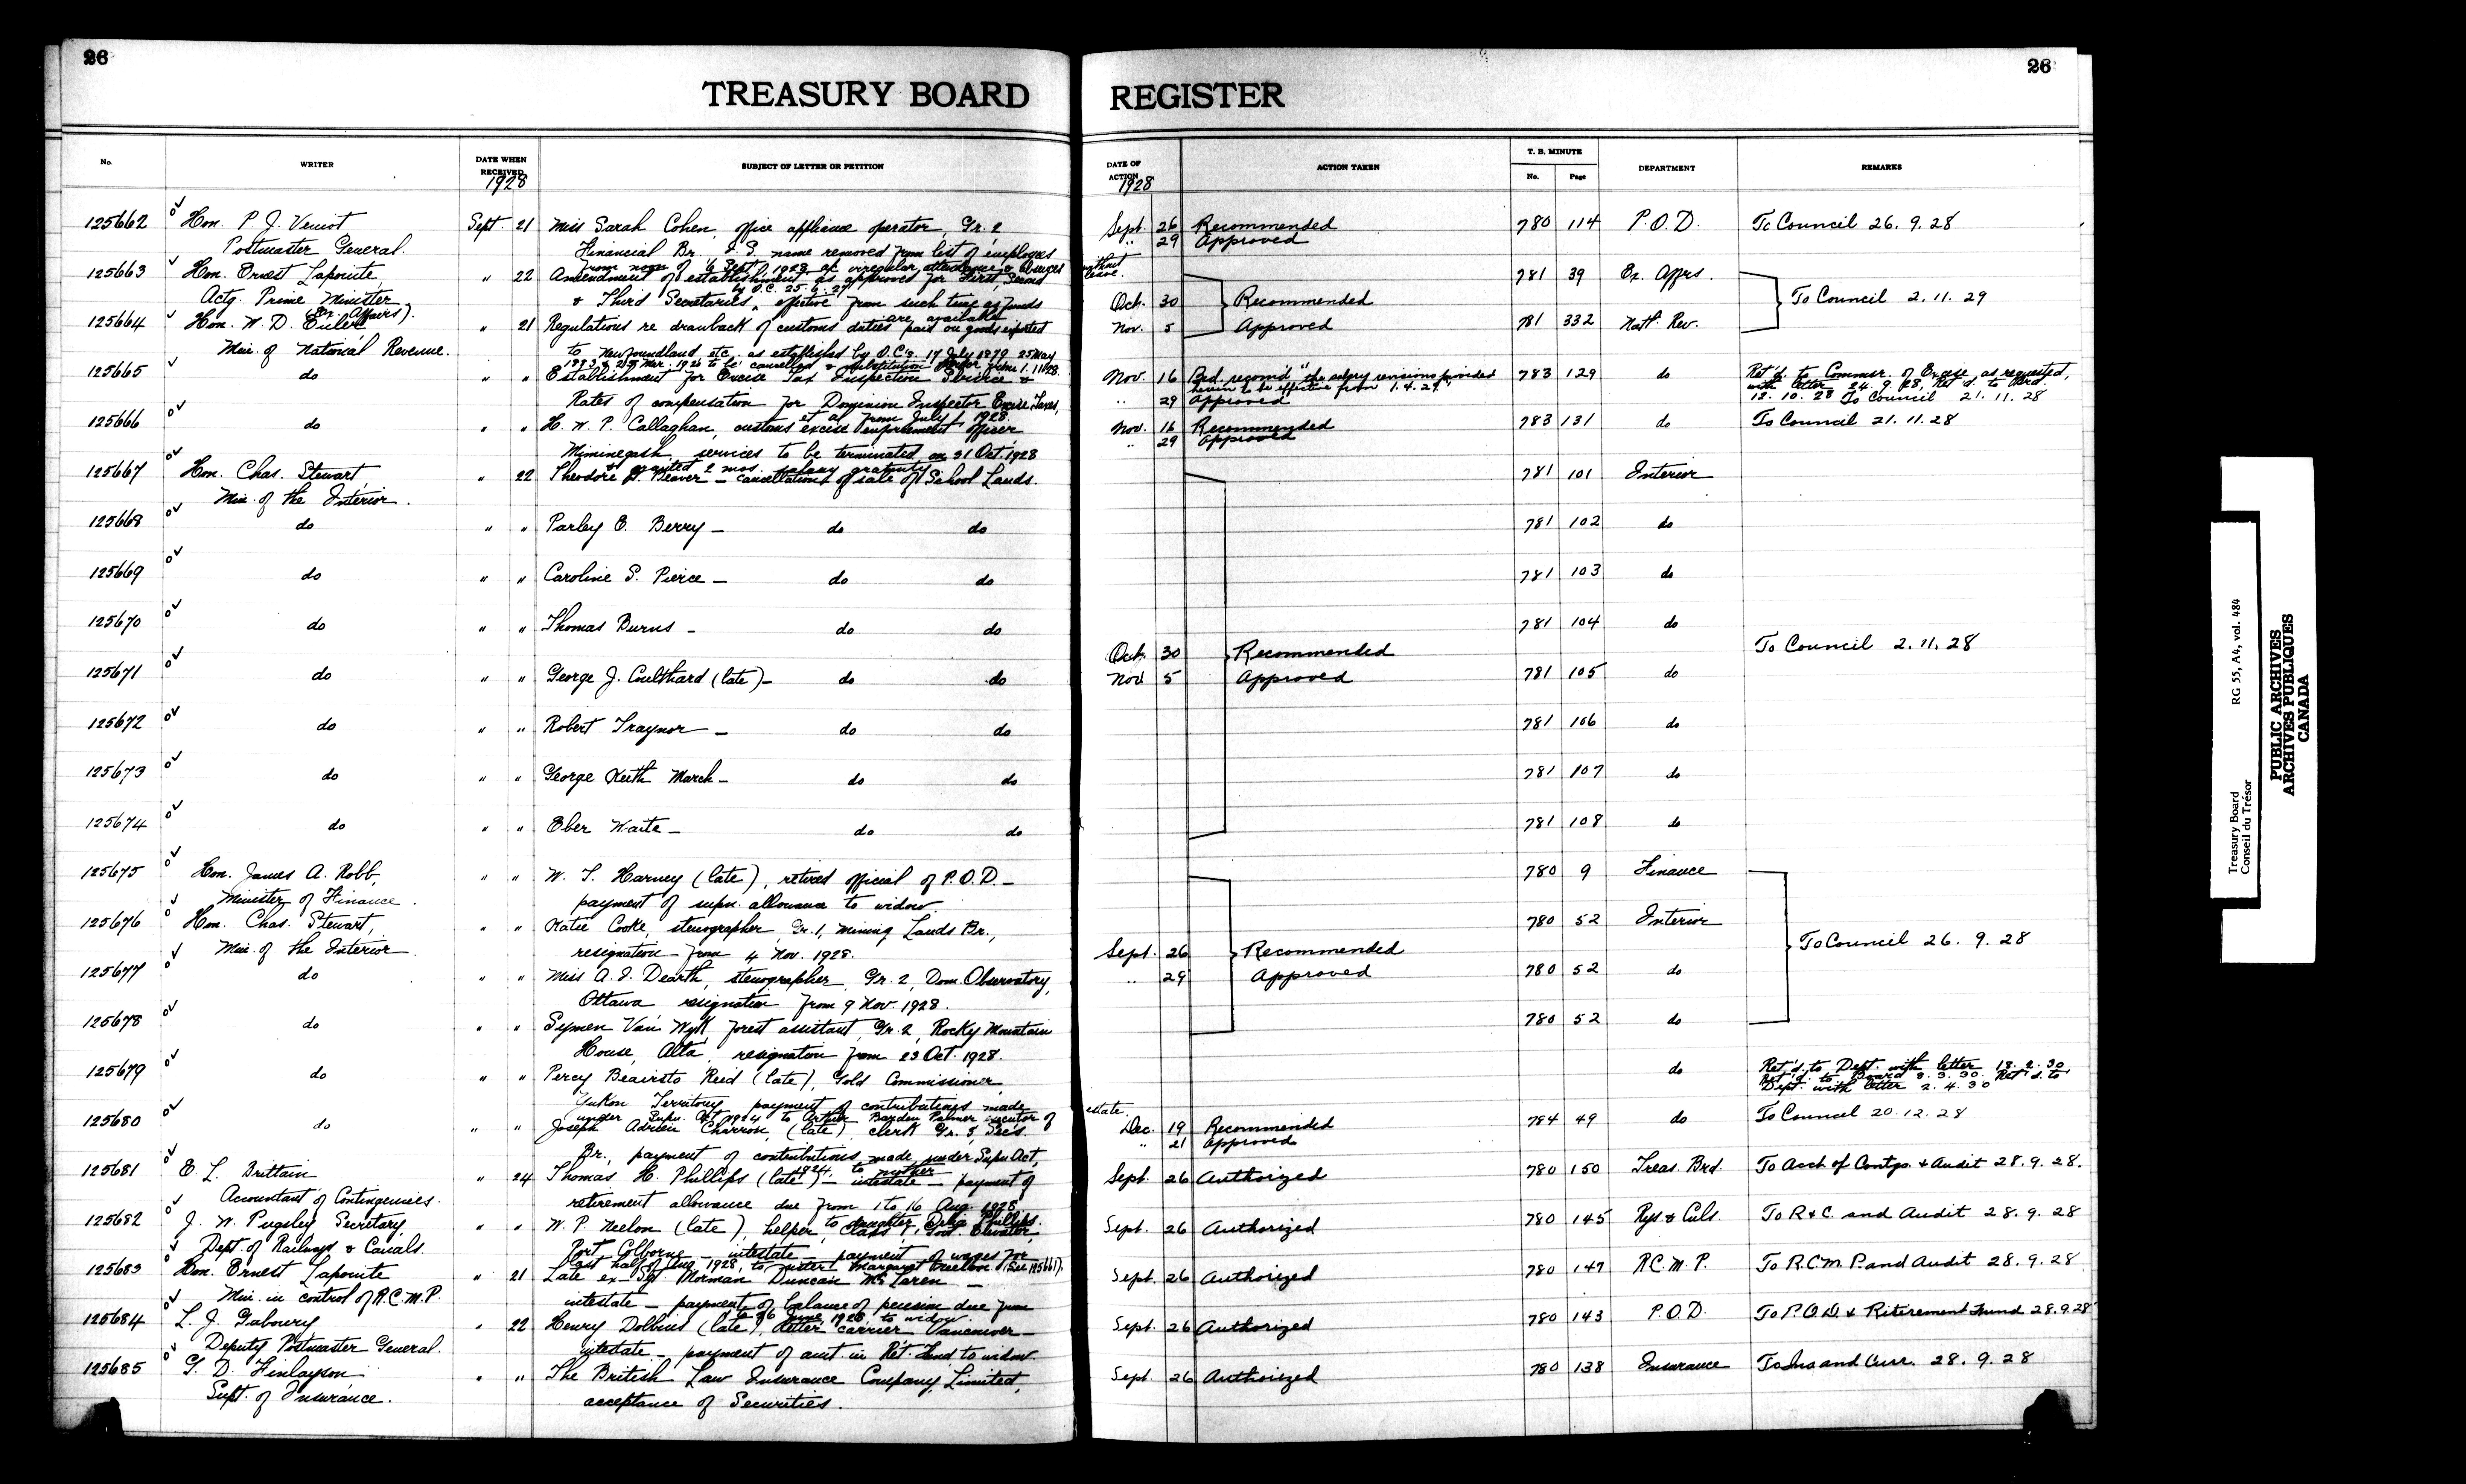 26
26
TREASURY BOARD REGISTER
No. WRITER DATE WHEN RECEIVED SUBJECT OF LETTER OR PETITION DATE OF ACTION ACTION TAKEN T. B. MINUTE No. Page DEPARTMENT REMARKS
1928 1928
125662 Hon. P. J. Veniot Sept. 21 Miss Sarah Cohen, office appliance operator, Gr. 2 Sept. 26 Recommended 780 114 P.O.D. To Council 26. 9. 28
Postmaster General. Financial Br., name removed from list of employees " 29 Approved
from noon of Sept. 1928 irregular attendance & absences without leave.
125663 Hon. Ernest Lapointe, " 22 Amendment of establishment as approved for First, Second 781 39 Ex. Affrs.
Actg. Prime Minister & Third Secretaries by O.C. 25.9.27, effective from such time as funds Oct. 30 Recommended To Council 2. 11. 29
(Ex. Affairs). are available
125664 Hon. W. D. Euler " 21 Regulations re drawback of customs duties paid on goods exported Nov. 5 Approved 781 332 Natl. Rev.
Min. of National Revenue. to Newfoundland etc. as established by O.C's. 17 July 1879 25 May
1893 & 27 Mar. 1926 to be cancelled & substitution
125665 do " " Establishment for Excise Tax Inspection Service & Nov. 16 Brd. recom'd "the salary revisions provided 783 129 do Ret'd. to Commsr. of Excise, as requested,
herein to be effective from 1.4.29" with letter 24. 9. 28, Ret'd. to Brd.
Rates of compensation for Dominion Inspector Excise Taxes, " 29 Approved 12. 10. 28 To Council 21. 11. 28
et al from July 1928.
125666 do " " H. W. P. Callaghan, customs excise enforcement officer Nov. 16 Recommended 783 131 do To Council 21. 11. 28
" 29 Approved
Miminegash, services to be terminated on 31 Oct. 1928
& granted 2 mos. salary gratuity
125667 Hon. Chas. Stewart, " 22 Theodore Beaver – cancellation of sale of School Lands. 781 101 Interior
Min. of the Interior.
125668 do " " Parley O. Berry – do do 781 102 do
125669 do " " Caroline S. Pierce – do do 781 103 do
125670 do " " Thomas Burns – do do 781 104 do
Oct. 30 Recommended To Council 2. 11. 28
125671 do " " George J. Coulthard (late) – do do Nov 5 Approved 781 105 do
125672 do " " Robert Traynor – do do 781 106 do
125673 do " " George Keith March – do do 781 107 do
125674 do " " Eber Waite – do do 781 108 do
125675 Hon. James A. Robb, " " W. T. Harney (late), retired official of P.O.D. – 780 9 Finance
Minister of Finance. payment of supn. allowance to widow
125676 Hon. Chas. Stewart, " " Katie Cooke, stenographer Gr. 1, Mining Lands Br., 780 52 Interior
Min. of the Interior. resignation from 4 Nov. 1928. Sept. 26 Recommended To Council 26. 9. 28
125677 do " " Miss A. I. Dearth, stenographer, Gr. 2, Dom. Observatory, " 29 Approved 780 52 do
Ottawa resignation from 9 Nov. 1928.
125678 do " " Symen Van Wyk, forest assistant, Gr. 2, Rocky Mountain 780 52 do
House, Alta., resignation from 23 Oct. 1928.
125679 do " " Percy Beairsto Reid (late), Gold Commissioner do Ret'd. to Dept. with letter 18. 2. 30
Ret'd. to Board 3. 3. 30. Ret'd. to
Dept. with letter 2. 4. 30
Yukon Territory, payment of contributions made
under Supn. Act 1924 to Arthur Barden Palmer executor of estate.
125680 do " " Joseph Adrien Charron, (late) clerk Gr. 3, Dec. 19 Recommended 784 49 do To Council 20. 12. 28
" 21 Approved
Br., payment of contributions made under Supn. Act,
1924, to mother
125681 E. L. Brittain " 24 Thomas H. Phillips (late) – intestate – payment of Sept. 26 Authorized 780 150 Treas. Brd. To Acct. of Contgs. & Audit 28. 9. 28.
Accountant of Contingencies. retirement allowance due from 1 to 16 Aug. 1928
to daughter Phillips.
125682 J. W. Pugsley Secretary, " " W. P. Neelon (late), helper, Class 1, Govt. Elevator, Sept. 26 Authorized 780 145 Rys & Cnls. To R & C. and Audit 28. 9. 28
Dept. of Railways & Canals. Port Colborne – intestate – payment of wages for
last half of Aug. 1928, to sister Margaret Neelon (See 125661).
125683 Hon. Ernest Lapointe " 21 Late ex-Sgt. Norman Duncan McLaren – Sept. 26 Authorized 780 147 R.C.M.P. To R.C.M.P. and Audit 28. 9. 28
Min. in control of R.C.M.P. intestate – payment of balance of pension due from
June 1928, to widow.
125684 L. J. Gaboury " 22 Henry Dobbins (late), letter carrier Vancouver – Sept. 26 Authorized 780 143 P.O.D. To P.O.D. & Retirement Fund 28.9.28
Deputy Postmaster General. intestate – payment of amt. in Ret. Fund to widow.
125685 G. D. Finlayson " " The British Law Insurance Company, Limited, Sept. 26 Authorized 780 138 Insurance To Ins and Curr. 28. 9. 28
Supt. of Insurance. acceptance of Securities.
Treasury Board RG 55, A4, vol. 484
Conseil du Trésor
PUBLIC ARCHIVES
ARCHIVES PUBLIQUES
CANADA